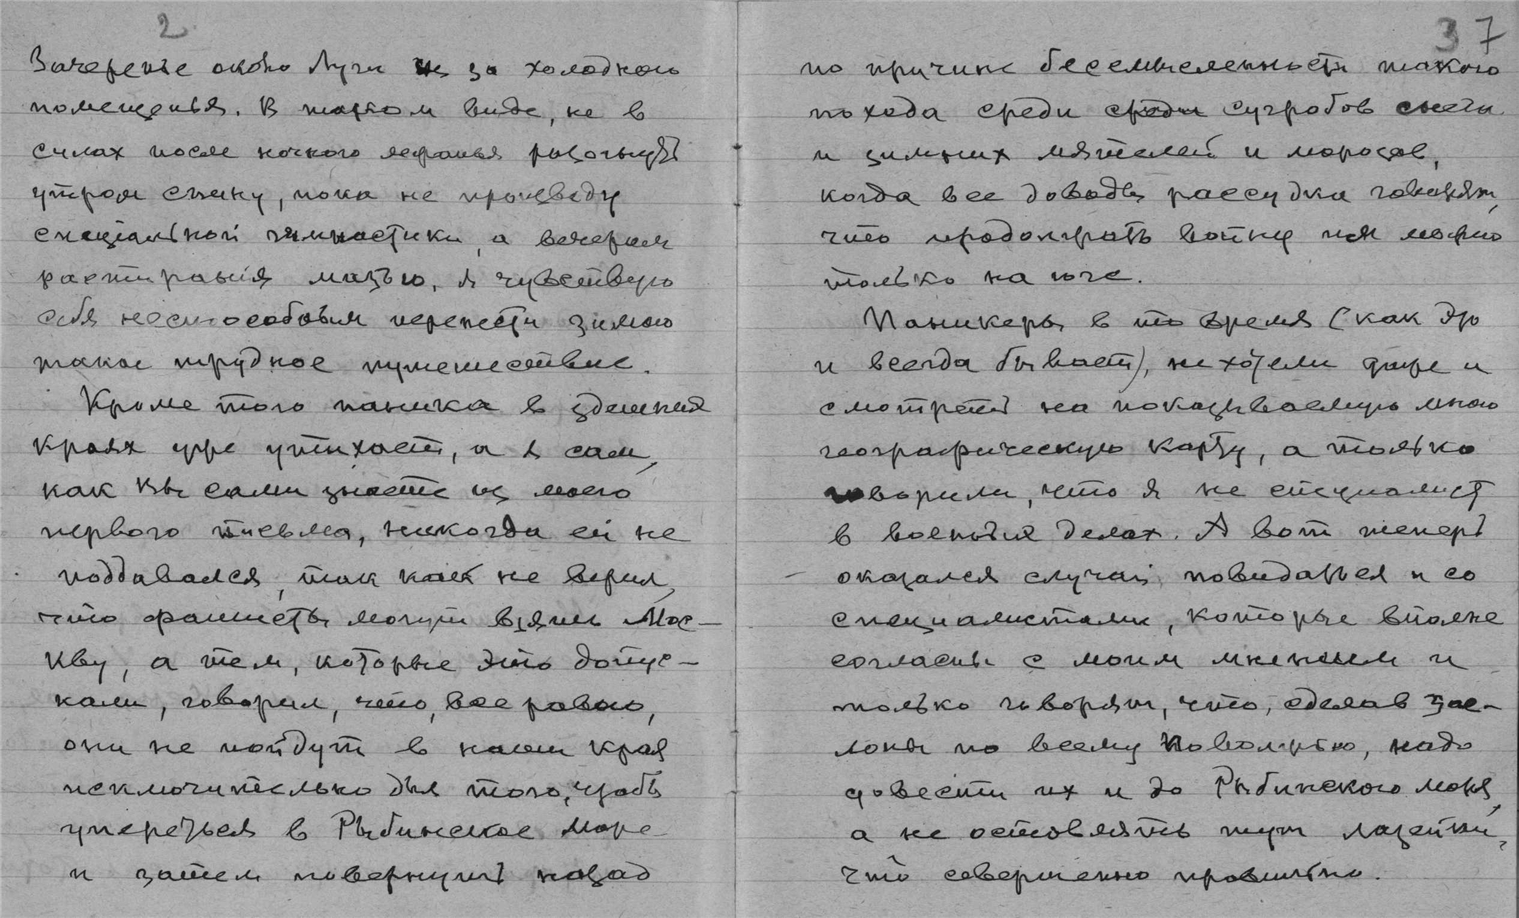 2
Заречье около Луги из за холодного
помещенья. В таком виде, не в
силах после ночного лежанья разогнуть
утром спину, пока не произведу
специальной гимнастики, а вечером
растиранья мазью, я чувствую
себя неспособным перенести зимою
такое трудное путешествие.
Кроме того паника в здешних
краях уже утихает, и я сам,
как Вы сами знаете из моего
первого письма, никогда ей не
поддавался, так как не верил,
что фашисты могут взять Мос-
кву, а тем, которые это допус-
кали, говорил, что, все равно,
они не пойдут в наши края
исключительно для того, чтобы
упереться в Рыбинское море
и затем повернуть назад
37
по причине бессмысленности такого
похода среди среди сугробов снега
и зимних мятелей и морозов,
когда все доводы рассудка говорят,
что продолжать войну им можно
только на юге.
Паникеры в то время (как это
и всегда бывает), не хотели даже и
смотреть на показываемую мною
географическую карту, а только
говорили, что я не специалист
в военных делах. А вот теперь
оказался случай повидаться и со
специалистами, которые вполне
согласны с моим мненьем и
только говорят, что, сделав зас-
лоны по всему Поволжью, надо
довести их и до Рыбинского моря,
а не оставлять тут лазейки,
что совершенно правильно.